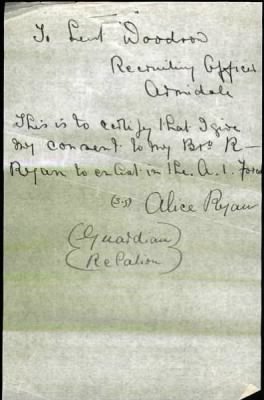 To Lieut Woodrow
Recruiting Officer
Armidale
This is to certify that I give
my consent to my Bro R
Ryan to enlist in the A. I. Force
Alice Ryan
(Guardian)
(Relation)